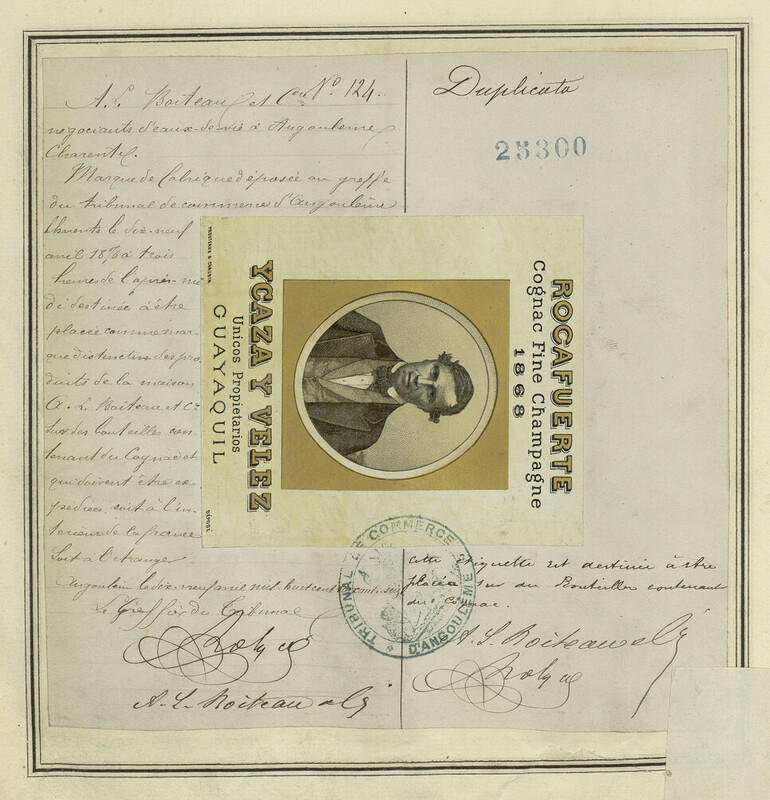 A. L. Boiteau et Cie No. 124.
négociants d'eaux-de-vie à Angoulême
Charente.
Marque de fabrique déposée au greffe
du tribunal de commerce d'Angoulême
Charente le dix-neuf
avril 1876 à trois
heures de l'après-mi
di destinée à être
placée comme mar-
que distinctive des pro
duits de la maison
A. L. Boiteau et Cie
sur des bouteilles con-
tenant du Cognac et
qui doivent être ex-
pédiées soit à l'in-
térieur de la france
soit à l'étranger
Angoulême le dix-neuf avril mil huit cent
Le Greffier du Tribunal
A. L. Boiteau et Cie
Duplicata
25300
ROCAFUERTE
Cognac Fine Champagne
1868
YCAZA Y VELEZ
Unicos Propietarios
GUAYAQUIL
DÉPOSÉ
TRIBUNAL DE COMMERCE
D'ANGOULEME
Cette étiquette est destinée à être
placée sur des Bouteilles contenant
du Cognac.
A. L. Boiteau et Cie